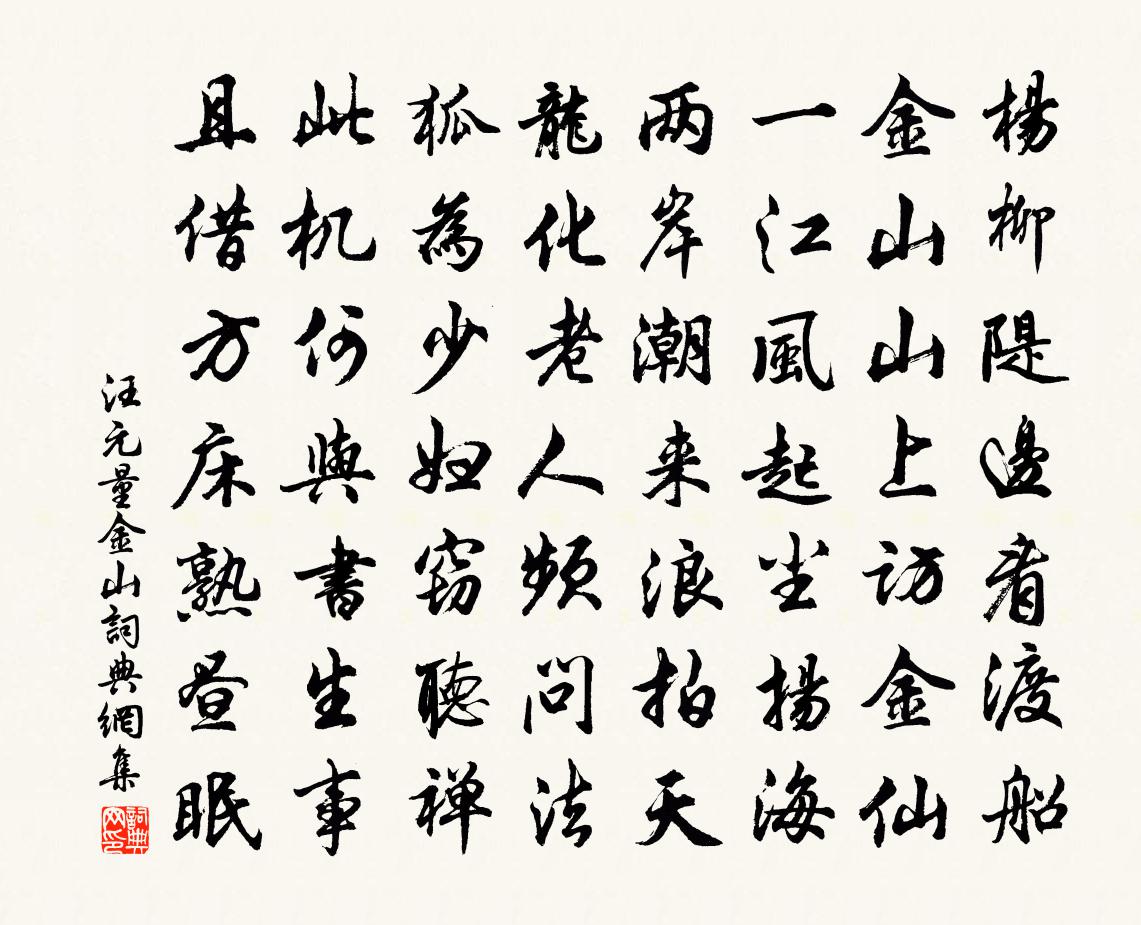 楊柳隄邊看渡船
金山山上訪金仙
一江風起尘揚海
两岸潮来浪拍天
龍化老人頻問法
狐為少妇窃聽禅
此机何與書生事
且借方床熟昼眠
汪元量金山詞典網集
詞典网印